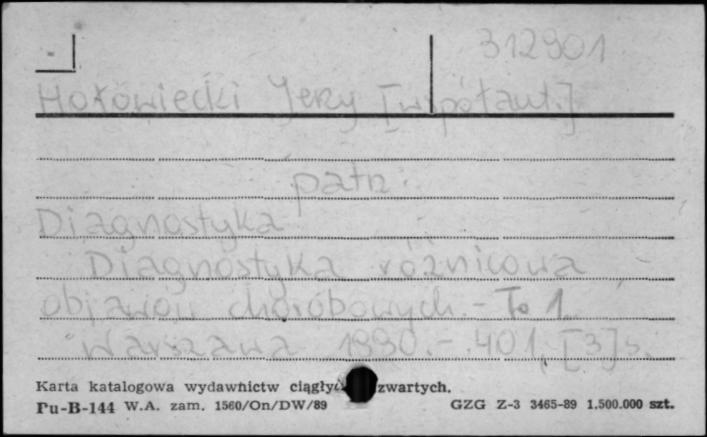 312901
Hołowiecki Jerzy [współaut.]
patrz:
Diagnostyka
Diagnostyka różnicowa
objawów chorobowych. - T. 1.
Warszawa 1990. - 401, [3] s.
Karta katalogowa wydawnictw ciągły zwartych.
Pu-B-144 W.A. zam. 1560/On/DW/89 GZG Z-3 3465-89 1.500.000 szt.